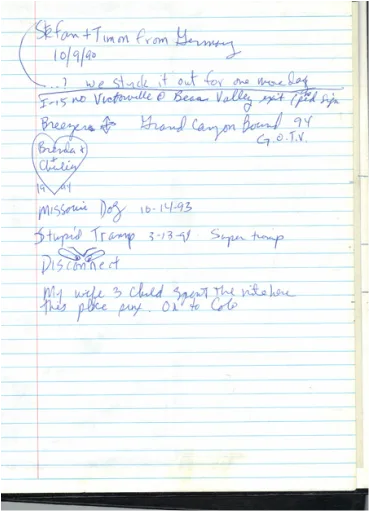 Stefan + Timon from Germany
10/9/90
...? we stuck it out for one more day
I-15 no Victorville @ Bear Valley exit
Breezer Grand Canyon Bound 94
G.O.T.V.
Brenda +
Charley
1994
Missouri Dog 10-14-93
Stupid Tramp 3-13-91 Super tramp
Disconnect
My wife 3 Child spent the nite here
this place sux. On to Colo